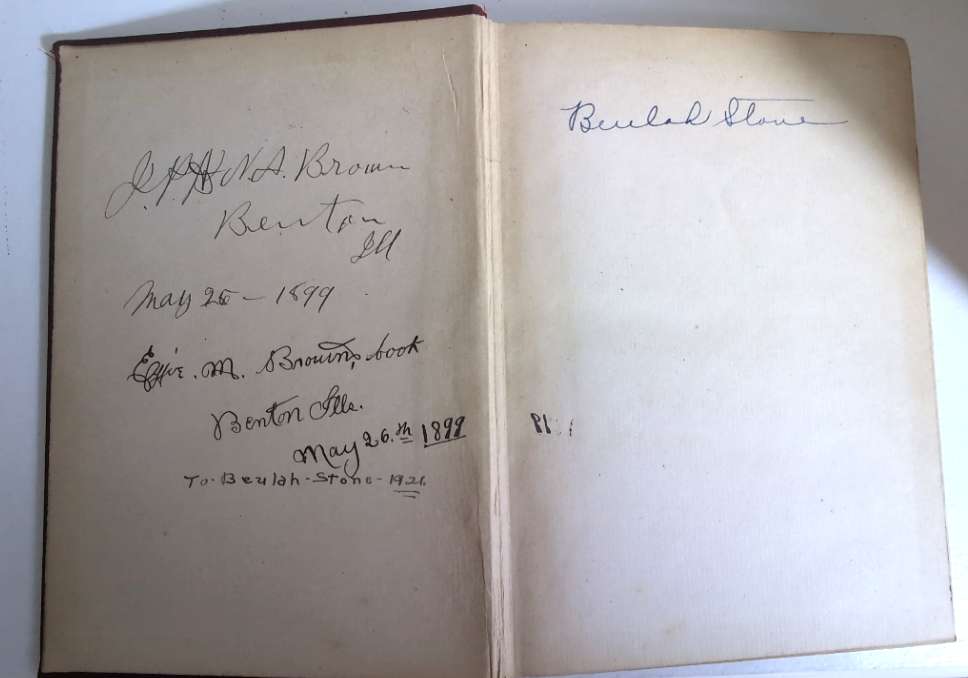 J. P. & N. A. Brown
Benton
Ill
May 26 - 1899
Effie. M. Brown's book
Benton Ills.
May 26.th 1899
To-Beulah-Stone-1921.
Beulah Stone